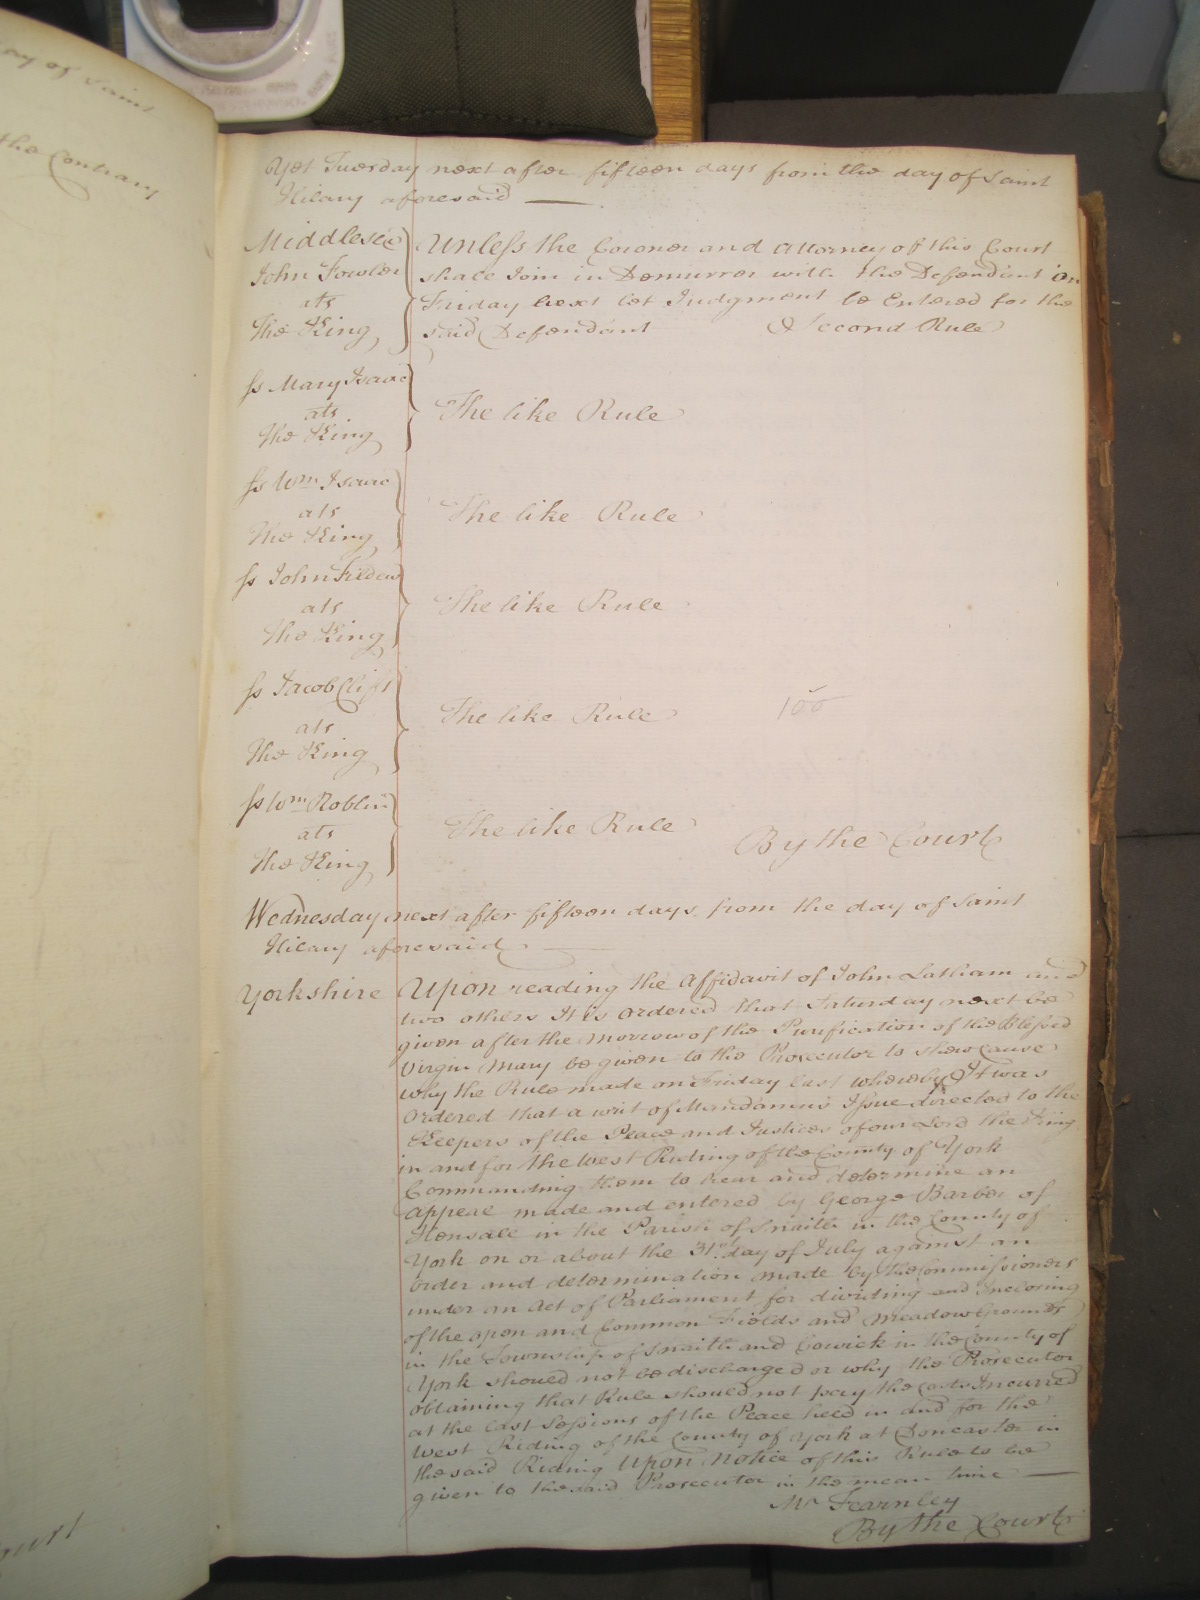 ay of Saint
the Contrary
ourt
Yet Tuesday next after fifteen days from the day of Saint
Hilary aforesaid
Middlesex
John Fowler
ats
The King
Unless the Coroner and Attorney of this Court
shall Join in Demurrer with the Defendant on
Friday next let Judgment be Entered for the
said Defendant A Second Rule
ss Mary Isaac
ats
The King
The like Rule
ss Wm Isaac
ats
The King
The like Rule
ss John Filden
ats
The King
The like Rule
ss Jacob Cliff
ats
The King
The like Rule
100
ss Wm Roblin
ats
The King
The like Rule
By the Court
Wednesday next after fifteen days from the day of Saint
Hilary aforesaid
Yorkshire Upon reading the Affidavit of John Latham and
two others It is Ordered that Saturday next be
given after the Morrow of the Purification of the Blessed
Virgin Mary be given to the Prosecutor to shew Cause
why the Rule made on Friday last whereby It was
Ordered that a writ of Mandamus Issue directed to the
Keepers of the Peace and Justices of our Lord the King
in and for the West Riding of the County of York
Commanding them to hear and determine an
appeal made and entered by George Barber of
Hensall in the Parish of Snaith in the County of
York on or about the 31st day of July against an
order and determination made by the Commissioners
under an Act of Parliament for dividing and Inclosing
of the open and Common Fields and Meadow Grounds
in the Township of Snaith and Cowick in the County of
York should not be discharged or why the Prosecutor
obtaining that Rule should not pay the Costs Incurred
at the last Sessions of the Peace held in and for the
West Riding of the County of York at Doncaster in
the said Riding Upon Notice of this Rule to be
given to the said Prosecutor in the mean time
Mr Fearnley
By the Court